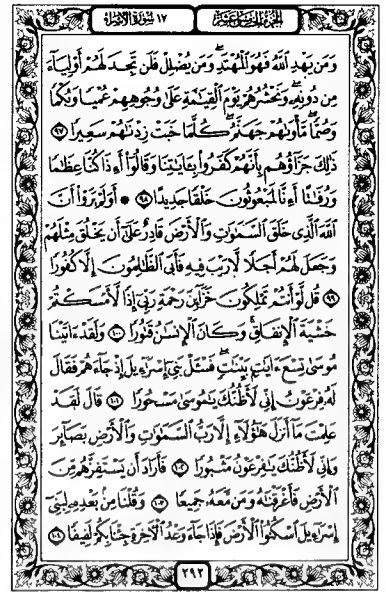 الجزء الخامس عشر
١٧ سورة الإسراء
وَمَن يَهْدِ ٱللَّهُ فَهُوَ ٱلْمُهْتَدِ ۖ وَمَن يُضْلِلْ فَلَن تَجِدَ لَهُمْ أَوْلِيَآءَ
مِن دُونِهِۦ ۖ وَنَحْشُرُهُمْ يَوْمَ ٱلْقِيَـٰمَةِ عَلَىٰ وُجُوهِهِمْ عُمْيًا وَبُكْمًا
وَصُمًّا ۖ مَّأْوَىٰهُمْ جَهَنَّمُ ۖ كُلَّمَا خَبَتْ زِدْنَـٰهُمْ سَعِيرًا ٩٧
ذَٰلِكَ جَزَآؤُهُم بِأَنَّهُمْ كَفَرُوا۟ بِـَٔايَـٰتِنَا وَقَالُوٓا۟ أَءِذَا كُنَّا عِظَـٰمًا
وَرُفَـٰتًا أَءِنَّا لَمَبْعُوثُونَ خَلْقًا جَدِيدًا ٩٨ ۞ أَوَلَمْ يَرَوْا۟ أَنَّ
ٱللَّهَ ٱلَّذِى خَلَقَ ٱلسَّمَـٰوَٰتِ وَٱلْأَرْضَ قَادِرٌ عَلَىٰٓ أَن يَخْلُقَ مِثْلَهُمْ
وَجَعَلَ لَهُمْ أَجَلًا لَّا رَيْبَ فِيهِ فَأَبَى ٱلظَّـٰلِمُونَ إِلَّا كُفُورًا
٩٩ قُل لَّوْ أَنتُمْ تَمْلِكُونَ خَزَآئِنَ رَحْمَةِ رَبِّىٓ إِذًا لَّأَمْسَكْتُمْ
خَشْيَةَ ٱلْإِنفَاقِ ۚ وَكَانَ ٱلْإِنسَـٰنُ قَتُورًا ١٠٠ وَلَقَدْ ءَاتَيْنَا
مُوسَىٰ تِسْعَ ءَايَـٰتٍۭ بَيِّنَـٰتٍ ۖ فَسْـَٔلْ بَنِىٓ إِسْرَٰٓءِيلَ إِذْ جَآءَهُمْ فَقَالَ
لَهُۥ فِرْعَوْنُ إِنِّى لَأَظُنُّكَ يَـٰمُوسَىٰ مَسْحُورًا ١٠١ قَالَ لَقَدْ
عَلِمْتَ مَآ أَنزَلَ هَـٰٓؤُلَآءِ إِلَّا رَبُّ ٱلسَّمَـٰوَٰتِ وَٱلْأَرْضِ بَصَآئِرَ
وَإِنِّى لَأَظُنُّكَ يَـٰفِرْعَوْنُ مَثْبُورًا ١٠٢ فَأَرَادَ أَن يَسْتَفِزَّهُم مِّنَ
ٱلْأَرْضِ فَأَغْرَقْنَـٰهُ وَمَن مَّعَهُۥ جَمِيعًا ١٠٣ وَقُلْنَا مِنۢ بَعْدِهِۦ لِبَنِىٓ
إِسْرَٰٓءِيلَ ٱسْكُنُوا۟ ٱلْأَرْضَ فَإِذَا جَآءَ وَعْدُ ٱلْـَٔاخِرَةِ جِئْنَا بِكُمْ لَفِيفًا ١٠٤
٢٩٢